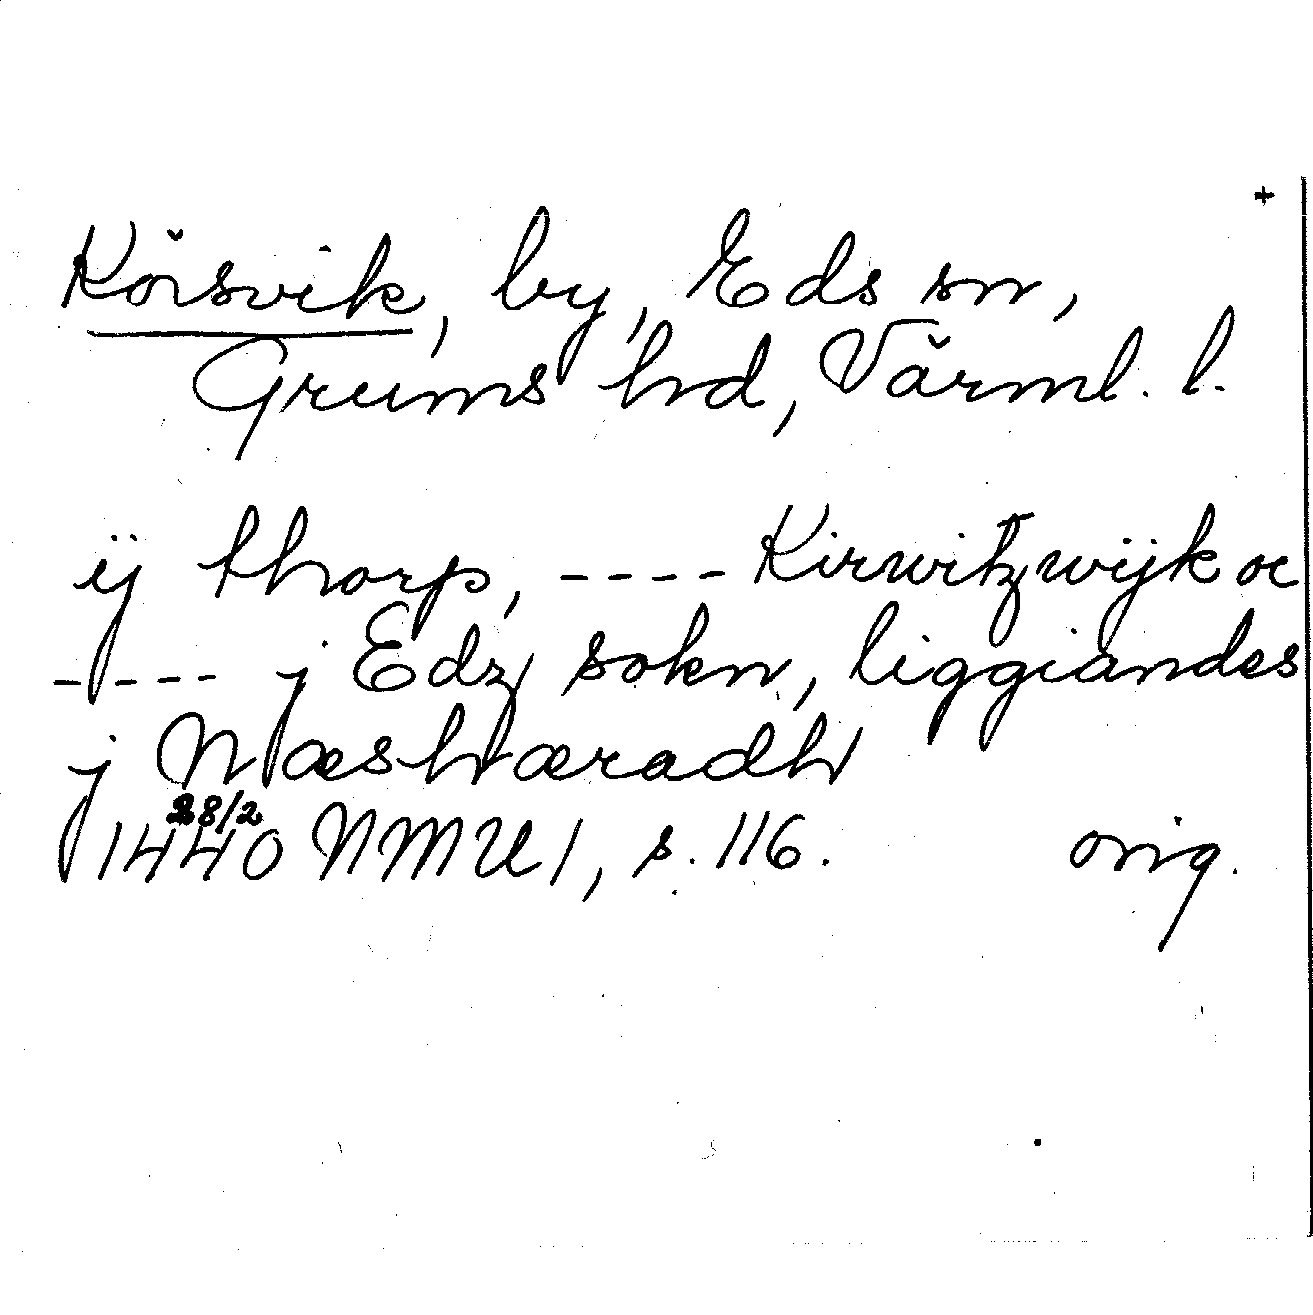 +
Körsvik, by, Eds sn,
Grums hd, Värml. l.
ij thorp, ---- Kirwitzwijk oc
---- j Edz sokn, liggiandes
j Næshæradh
28/2
1440 NMU 1, s. 116. orig.